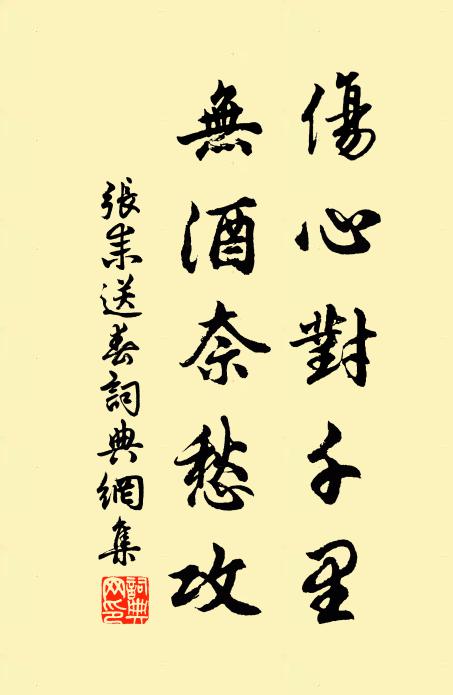 傷心對千里
無酒奈愁攻
張耒送春詞典網集
詞典網印